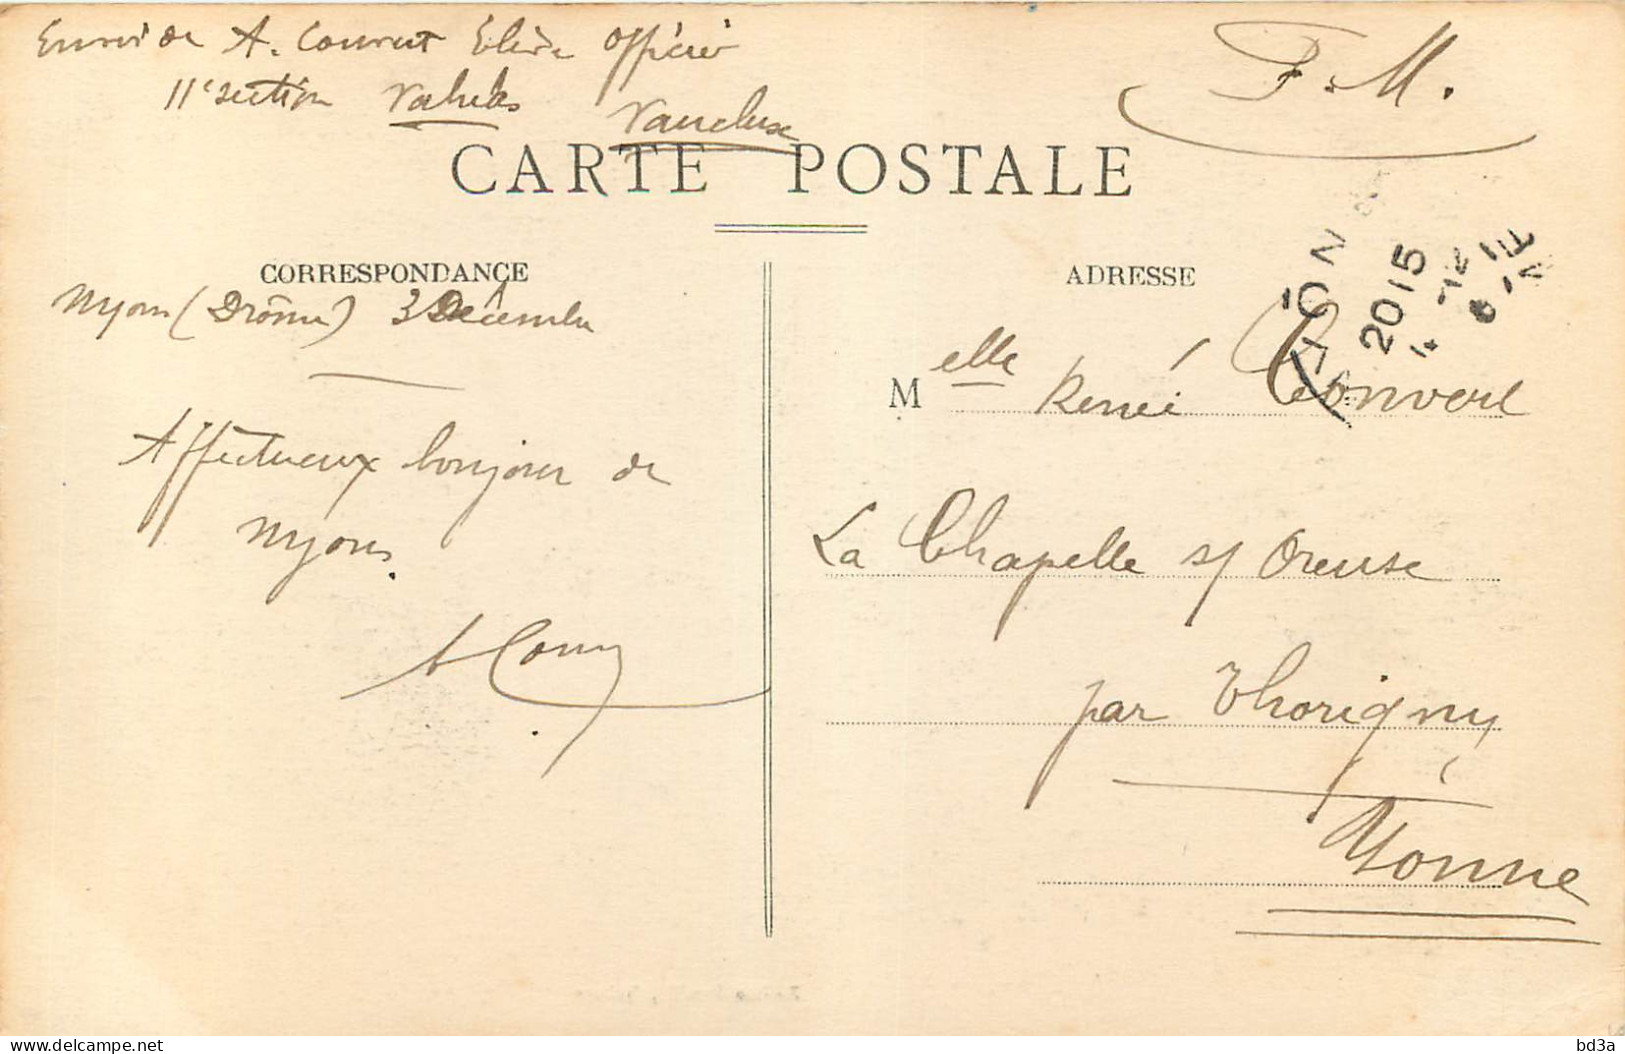 Envoi de A. Convert Elève Officier
11e section Valréas Vaucluse
F. M.
CARTE POSTALE
CORRESPONDANCE
Nyons (Drôme) 3 Décembre
Affectueux bonjour de
Nyons.
A Conv
ADRESSE
20 15
4 - 12
Melle Renée Convert
La Chapelle s/ Oreuse
par Thorigny
Yonne
bd3a
delcampe.net